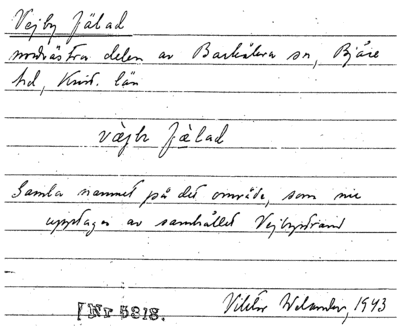 Vejby Fälad
nordöstra delen av Barkåkra sn, Bjäre
hd, Krist. län
väjby fälad
Gamla namnet på det område, som nu
upptages av samhället Vejbystrand
[Nr 5818.
Viktor Welander, 1943